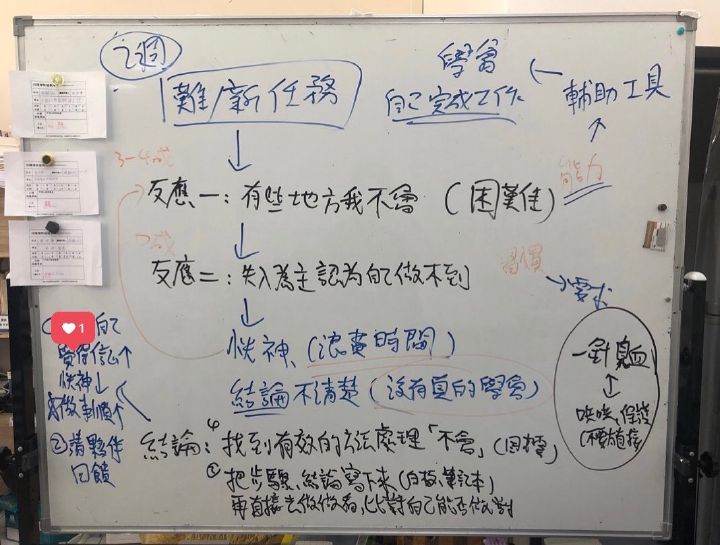 之週
難/新任務
學會
自己完成工作
輔助工具
能力
3-4成
反應一:有些地方我不會(困難)
7成
反應二:先入為主認為自己做不到
習慣
要求
恍神(浪費時間)
結論不清楚(沒有真的學會)
一針見血
保證
1
自己
覺得信心↑
恍神↓
做事順↑
②請夥伴
回饋
結論:
找到有效的方法處理「不會」(困難)
把步驟、結論寫下來(白板、筆記本)
再直接去做做看,比對自己能否做對